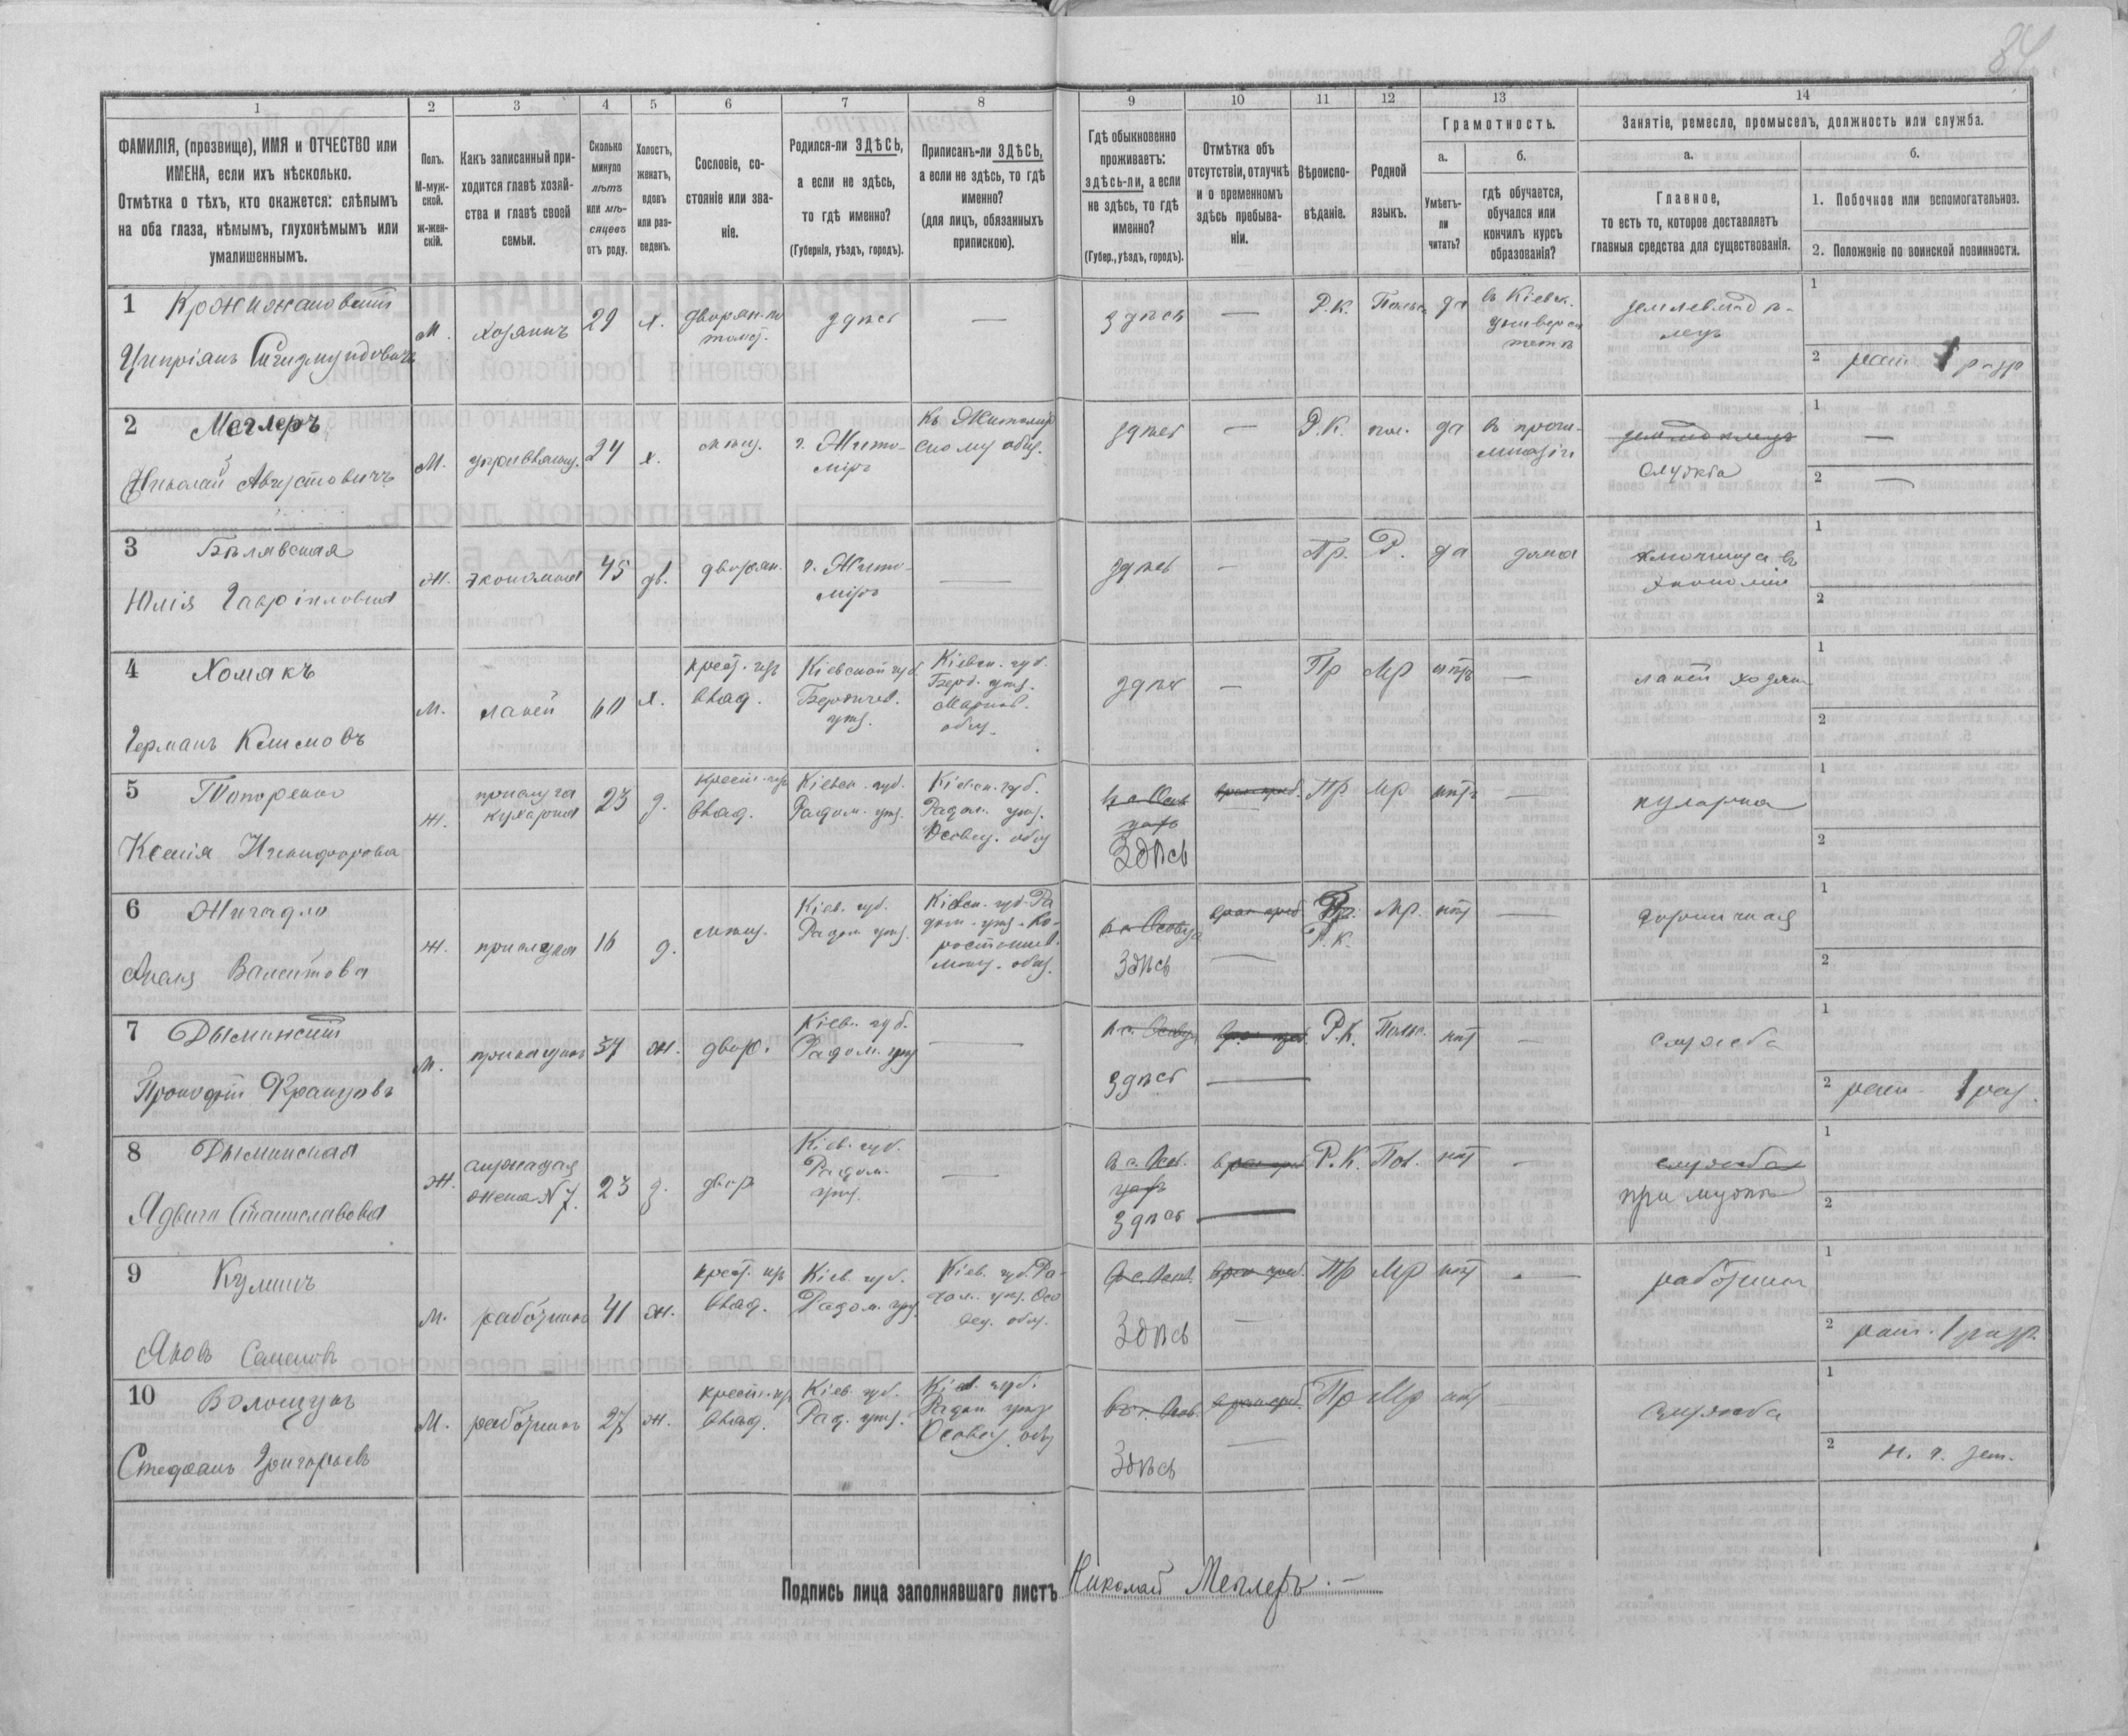 84
1 2 3 4 5 6 7 8 9 10 11 12 13 14
ФАМИЛІЯ, (прозвище), ИМЯ и ОТЧЕСТВО или
ИМЕНА, если ихъ нѣсколько.
Отмѣтка о тѣхъ, кто окажется: слѣпымъ
на оба глаза, нѣмымъ, глухонѣмымъ или
умалишеннымъ.
Полъ.
М-муж-
ской.
Ж-жен-
скій.
Какъ записанный при-
ходится главѣ хозяй-
ства и главѣ своей
семьи.
Сколько
минуло
лѣтъ
или мѣ-
сяцевъ
отъ роду.
Холостъ,
женатъ,
вдовъ
или раз-
веденъ.
Сословіе, со-
стояніе или зва-
ніе.
Родился-ли ЗДѢСЬ,
а если не здѣсь,
то гдѣ именно?
(Губернія, уѣздъ, городъ).
Приписанъ-ли ЗДѢСЬ,
а если не здѣсь, то гдѣ
именно?
(для лицъ, обязанныхъ
припискою).
Гдѣ обыкновенно
проживаетъ:
здѣсь-ли, а если
не здѣсь, то гдѣ
именно?
(Губер., уѣздъ, городъ).
Отмѣтка объ
отсутствіи, отлучкѣ
и о временномъ
здѣсь пребыва-
ніи.
Вѣроиспо-
вѣданіе.
Родной
языкъ.
Грамотность.
а.
Умѣетъ-
ли
читать?
б.
гдѣ обучается,
обучался или
кончилъ курсъ
образованія?
Занятіе, ремесло, промыселъ, должность или служба.
а.
Главное,
то есть то, которое доставляетъ
главныя средства для существованія.
б.
1. Побочное или вспомогательное.
2. Положеніе по воинской повинности.
1 Кржижановскій
Ципріянъ Сигизмундовичъ
М. хозяинъ 29 х. дворян. здѣсь —
здѣсь — Р.К. Польск. да въ Кіевск.
университетѣ
землевладѣ-
лецъ
1
2 рат. 1 разр
2 Меглеръ
Николай Августовичъ
М. 24 х. мѣщ. г. Жито-
міръ
Къ Житомир
скому общ.
здѣсь — Р.К. пол. да въ проги-
мназіи
служба
1 —
2 —
3 Бѣлявская
Юлія Гавріиловна
Ж. экономка 45 дв. дворян. г. Жито-
міръ
—
здѣсь — Пр. Р. да дома ключница въ
экономіи
1
2
4 Хомякъ
Германъ Климовъ
М. лакей 60 х. крест. изъ
влад.
Кіевской губ
Бердичев.
уѣз.
Кіевск. губ.
Берд. уѣз.
общ.
здѣсь — Пр Мр нѣтъ — лакей
1
2
5 Топоренко
Ксенія Никифорова
ж. прислуга
кухарка
23 д. крест. изъ
влад.
Кіевск. губ.
Радом. уѣз.
Кіевск. губ.
Радом. уѣз.
Осовец. общ
Здѣсь
Пр Мр нѣтъ — кухарка
1
2
6 Жигадло
ж. прислуга 16 д. мѣщ. Кіев. губ.
Радом уѣз.
Кіевск. губ. Ра
дом. уѣз. Ко-
ростышев.
мѣщ. общ.
Здѣсь — Р.К. Мр. нѣт — горничная
1
2
7 Дыминскій
М. прикащикъ ж. двор. Кіев. губ.
Радом. уѣз
—
здѣсь — Р.К. Польс. нѣт — служба
1
2 рат. 1 раз.
8 Дыминская
Ядвига Станиславовна
Ж. служащая
жена №7.
23 з. двор Кіев. губ.
Радом.
уѣз.
—
здѣсь — Р.К. Пол. нѣт — при мужѣ
1
2
9 Кулишъ
Яковъ Семеновъ
М. работникъ 41 ж. крест. изъ
влад.
Кіев. губ.
Радом. уѣз.
Кіев. губ. Ра-
дом. уѣз. Осо
вец. общ.
Здѣсь — Пр Мр нѣт — работникъ
1
2 рат. 1 разр.
10 Волощукъ
Стефанъ Григорьевъ
М. работникъ 27 ж. крест. изъ
влад.
Кіев. губ.
Рад. уѣз.
Кіев. губ.
Радом уѣз
Осовец. общ
Здѣсь — Пр Мр нѣт служба
1
2 н. ч. зап.
Подпись лица заполнявшаго листъ Николай Меглеръ.